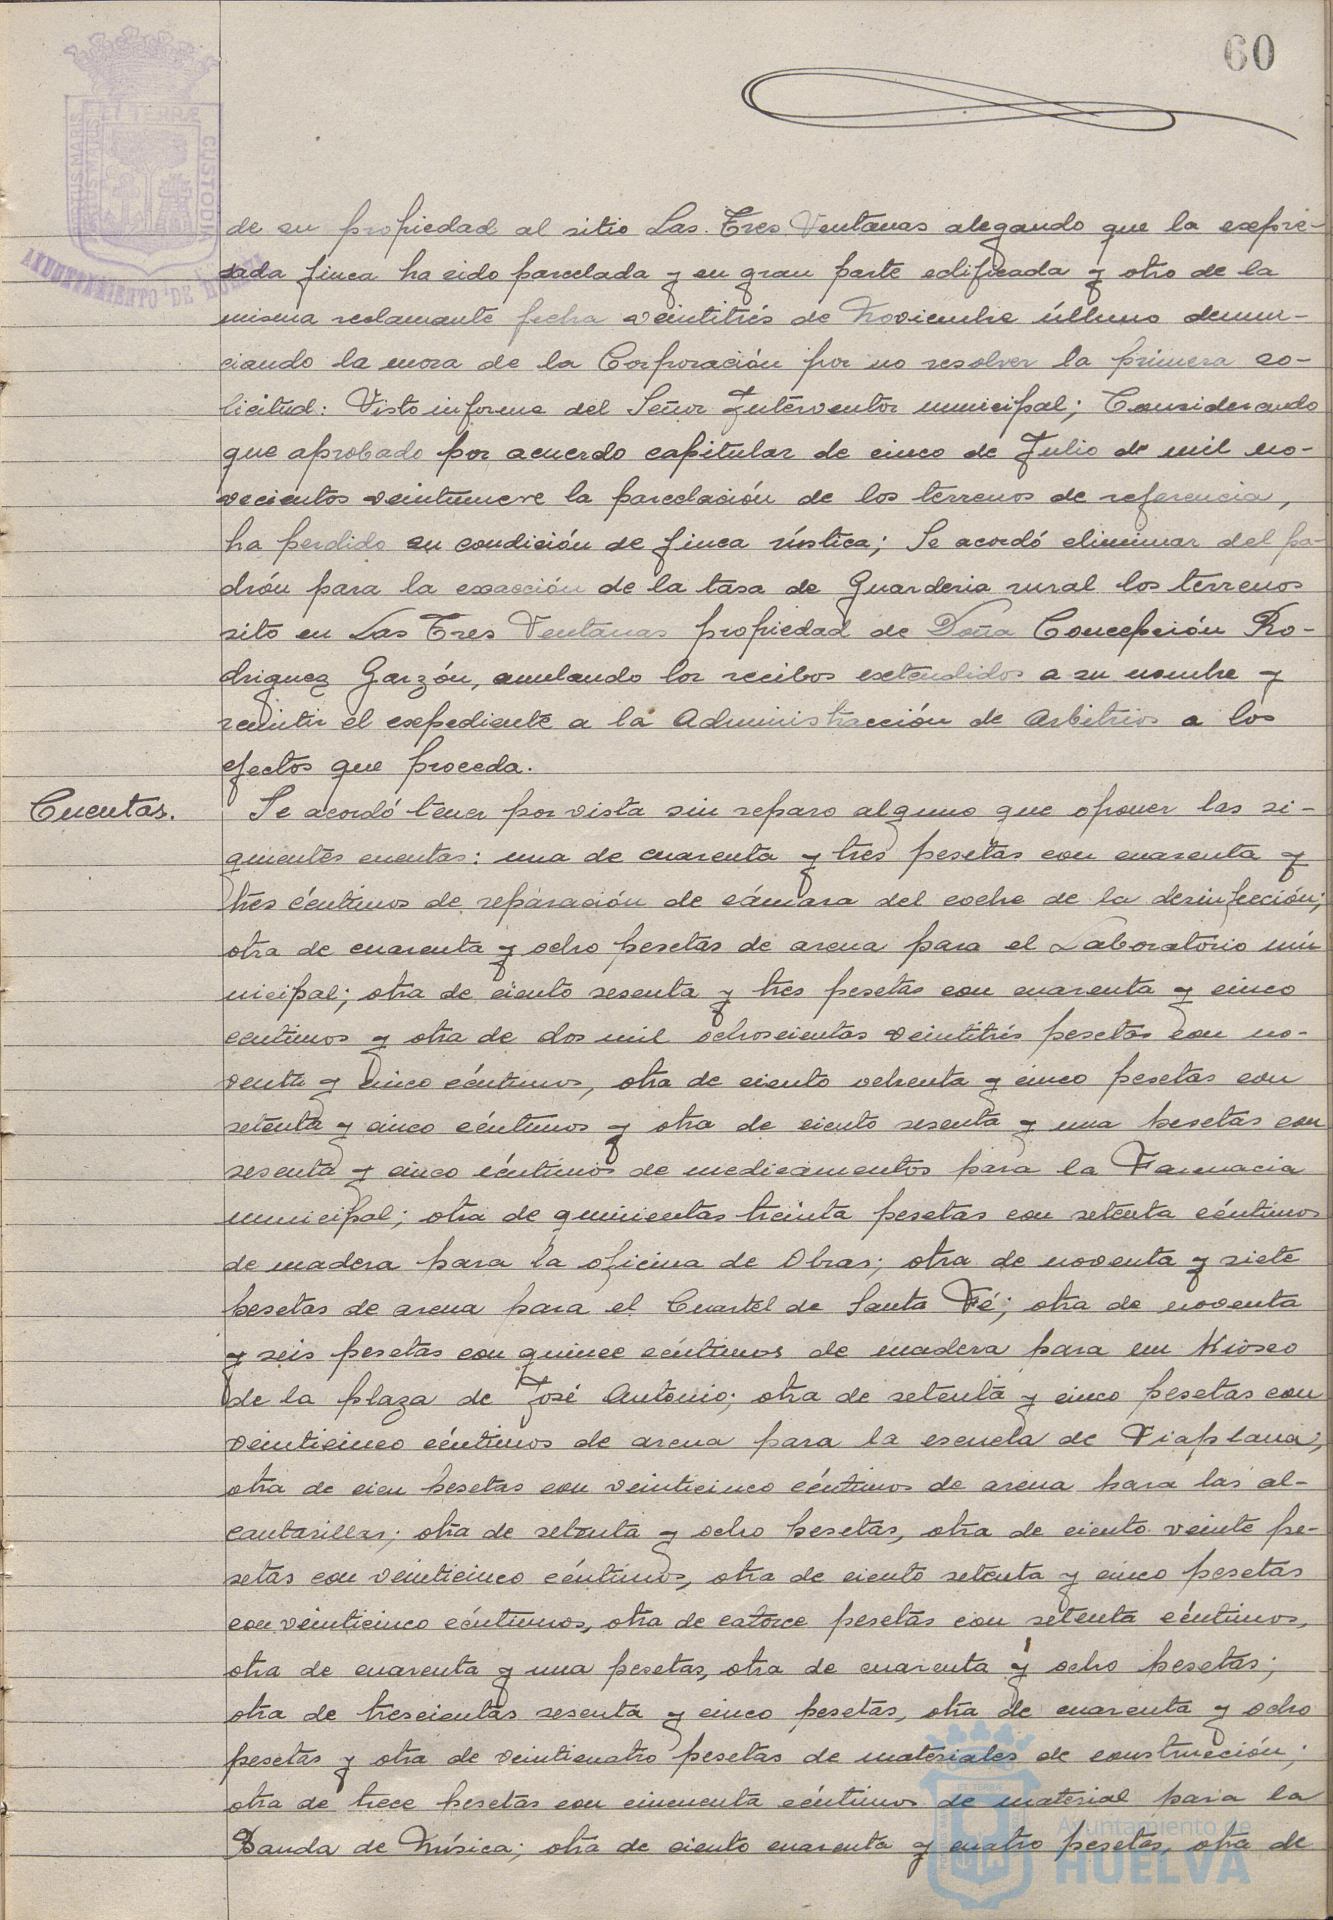 60
ET TERRÆ
CUSTODIA
AYUNTAMIENTO DE HUELVA
de su propiedad al sitio Las Tres Ventanas alegando que la expre-
sada finca ha sido parcelada y en gran parte edificada y otro de la
misma reclamante fecha veintitrés de Noviembre último denun-
ciando la mora de la Corporación por no resolver la primera so-
licitud: Visto informe del Señor Interventor municipal; Considerando
que aprobado por acuerdo capitular de cinco de Julio de mil no-
vecientos veintinueve la parcelación de los terrenos de referencia,
ha perdido su condición de finca rústica; Se acordó eliminar del pa-
drón para la exacción de la tasa de Guarderia rural los terrenos
sito en Las Tres Ventanas propiedad de Doña Concepción Ro-
driguez Garzón, anulando los recibos extendidos a su nombre y
remitir el expediente a la Administracción de Arbitrios a los
efectos que proceda.
Cuentas.
Se acordó tener por vista sin reparo alguno que oponer las si-
guientes cuentas: una de cuarenta y tres pesetas con cuarenta y
tres céntimos de reparación de cámara del coche de la desinfección;
otra de cuarenta y ocho pesetas de arena para el Laboratorio mu
nicipal; otra de ciento sesenta y tres pesetas con cuarenta y cinco
centimos y otra de dos mil ochoscientas veintitrés pesetas con no-
venta y cinco céntimos, otra de ciento ochenta y cinco pesetas con
setenta y cinco céntimos y otra de ciento sesenta y una pesetas con
sesenta y cinco céntimos de medicamentos para la Farmacia
municipal; otra de quinientas treinta pesetas con setenta céntimos
de madera para la oficina de Obras; otra de noventa y siete
pesetas de arena para el Cuartel de Santa Fé; otra de noventa
y seis pesetas con quince céntimos de madera para un Kiosco
de la plaza de José Antonio; otra de setenta y cinco pesetas con
veinticinco céntimos de arena para la escuela de Viaplana,
otra de cien pesetas con veinticinco céntimos de arena para las al-
cantarillas; otra de setenta y ocho pesetas, otra de ciento veinte pe-
setas con veinticinco céntimos, otra de ciento setenta y cinco pesetas
con veinticinco céntimos, otra de catorce pesetas con setenta céntimos,
otra de cuarenta y una pesetas, otra de cuarenta y ocho pesetas;
otra de trescientas sesenta y cinco pesetas, otra de cuarenta y ocho
pesetas y otra de veinticuatro pesetas de materiales de construcción;
otra de trece pesetas con cincuenta céntimos de material para la
Banda de Música; otra de ciento cuarenta y cuatro pesetas, otra de
Ayuntamiento de
HUELVA